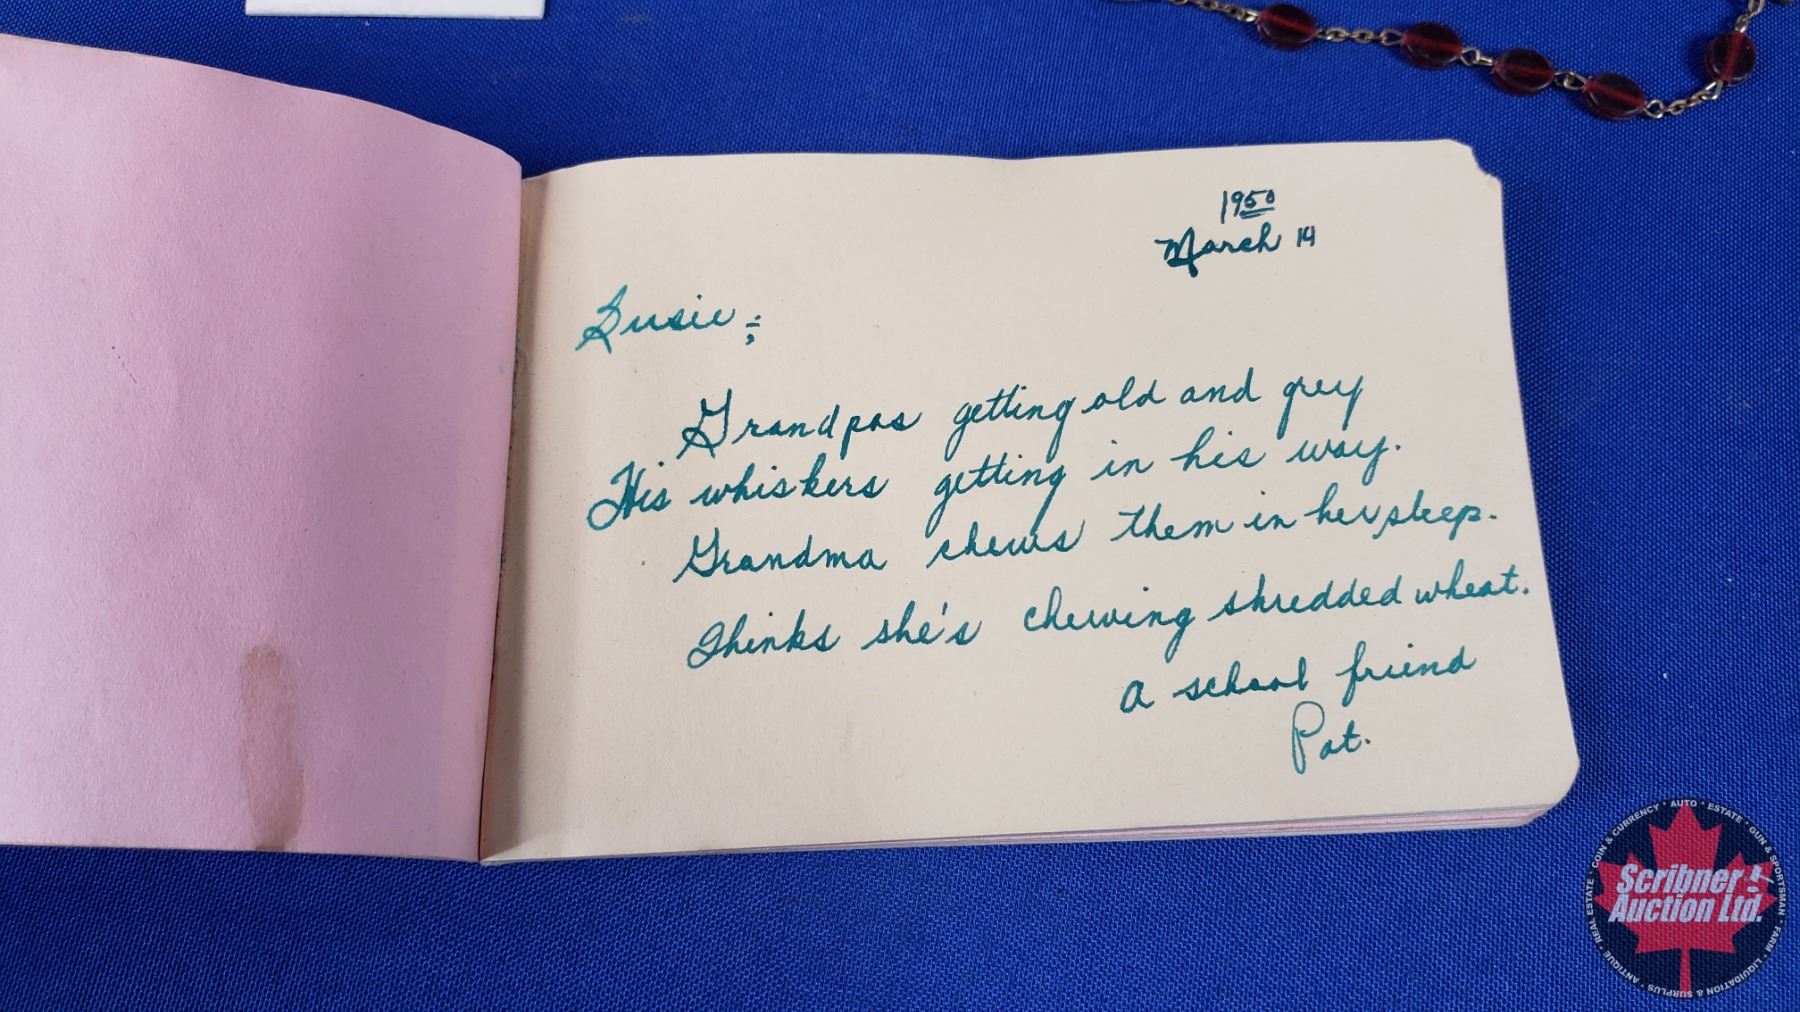 1950
March 14
Susie;
Grandpas getting old and grey
His whiskers getting in his way.
Grandma chews them in her sleep.
Thinks she's chewing shredded wheat.
a school friend
Pat.
Scribner
Auction Ltd.
ANTIQUE * REAL ESTATE * COIN & CURRENCY * AUTO * ESTATE * GUN & SPORTSMAN * FARM * LIQUIDATION & SURPLUS *